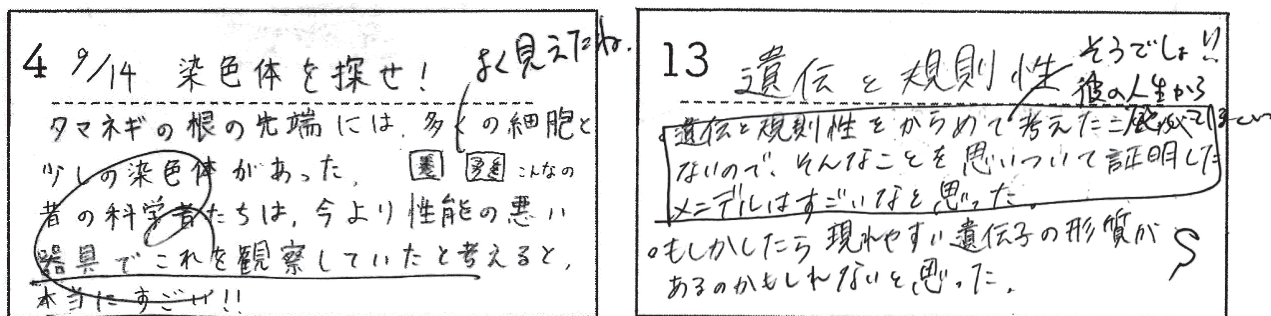 4 9/14 染色体を探せ!
よく見えたね.
タマネギの根の先端には、多くの細胞と
少しの染色体があった。 こんなの
昔の科学者たちは、今より性能の悪い
器具でこれを観察していたと考えると、
本当にすごい!!
13 遺伝と規則性
そうでしょ!!
彼の人生から
遺伝と規則性をからめて考えたこ
ないので、そんなことを思いついて証明した
メンデルはすごいなと思った。
もしかしたら現れやすい遺伝子の形質が
あるのかもしれないと思った。
S